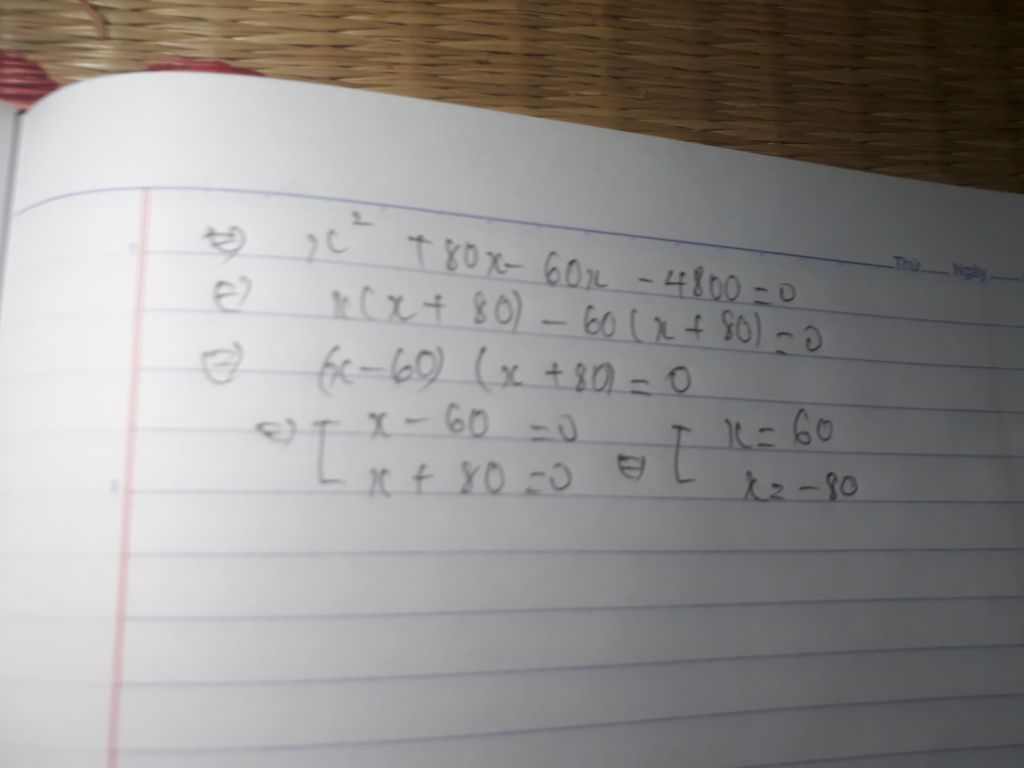 Thứ Ngày
⇔ x² + 80x - 60x - 4800 = 0
⇔ x(x + 80) - 60(x + 80) = 0
⇔ (x - 60) (x + 80) = 0
⇔ [ x - 60 = 0 ⇔ [ x = 60
x + 80 = 0 x = -80